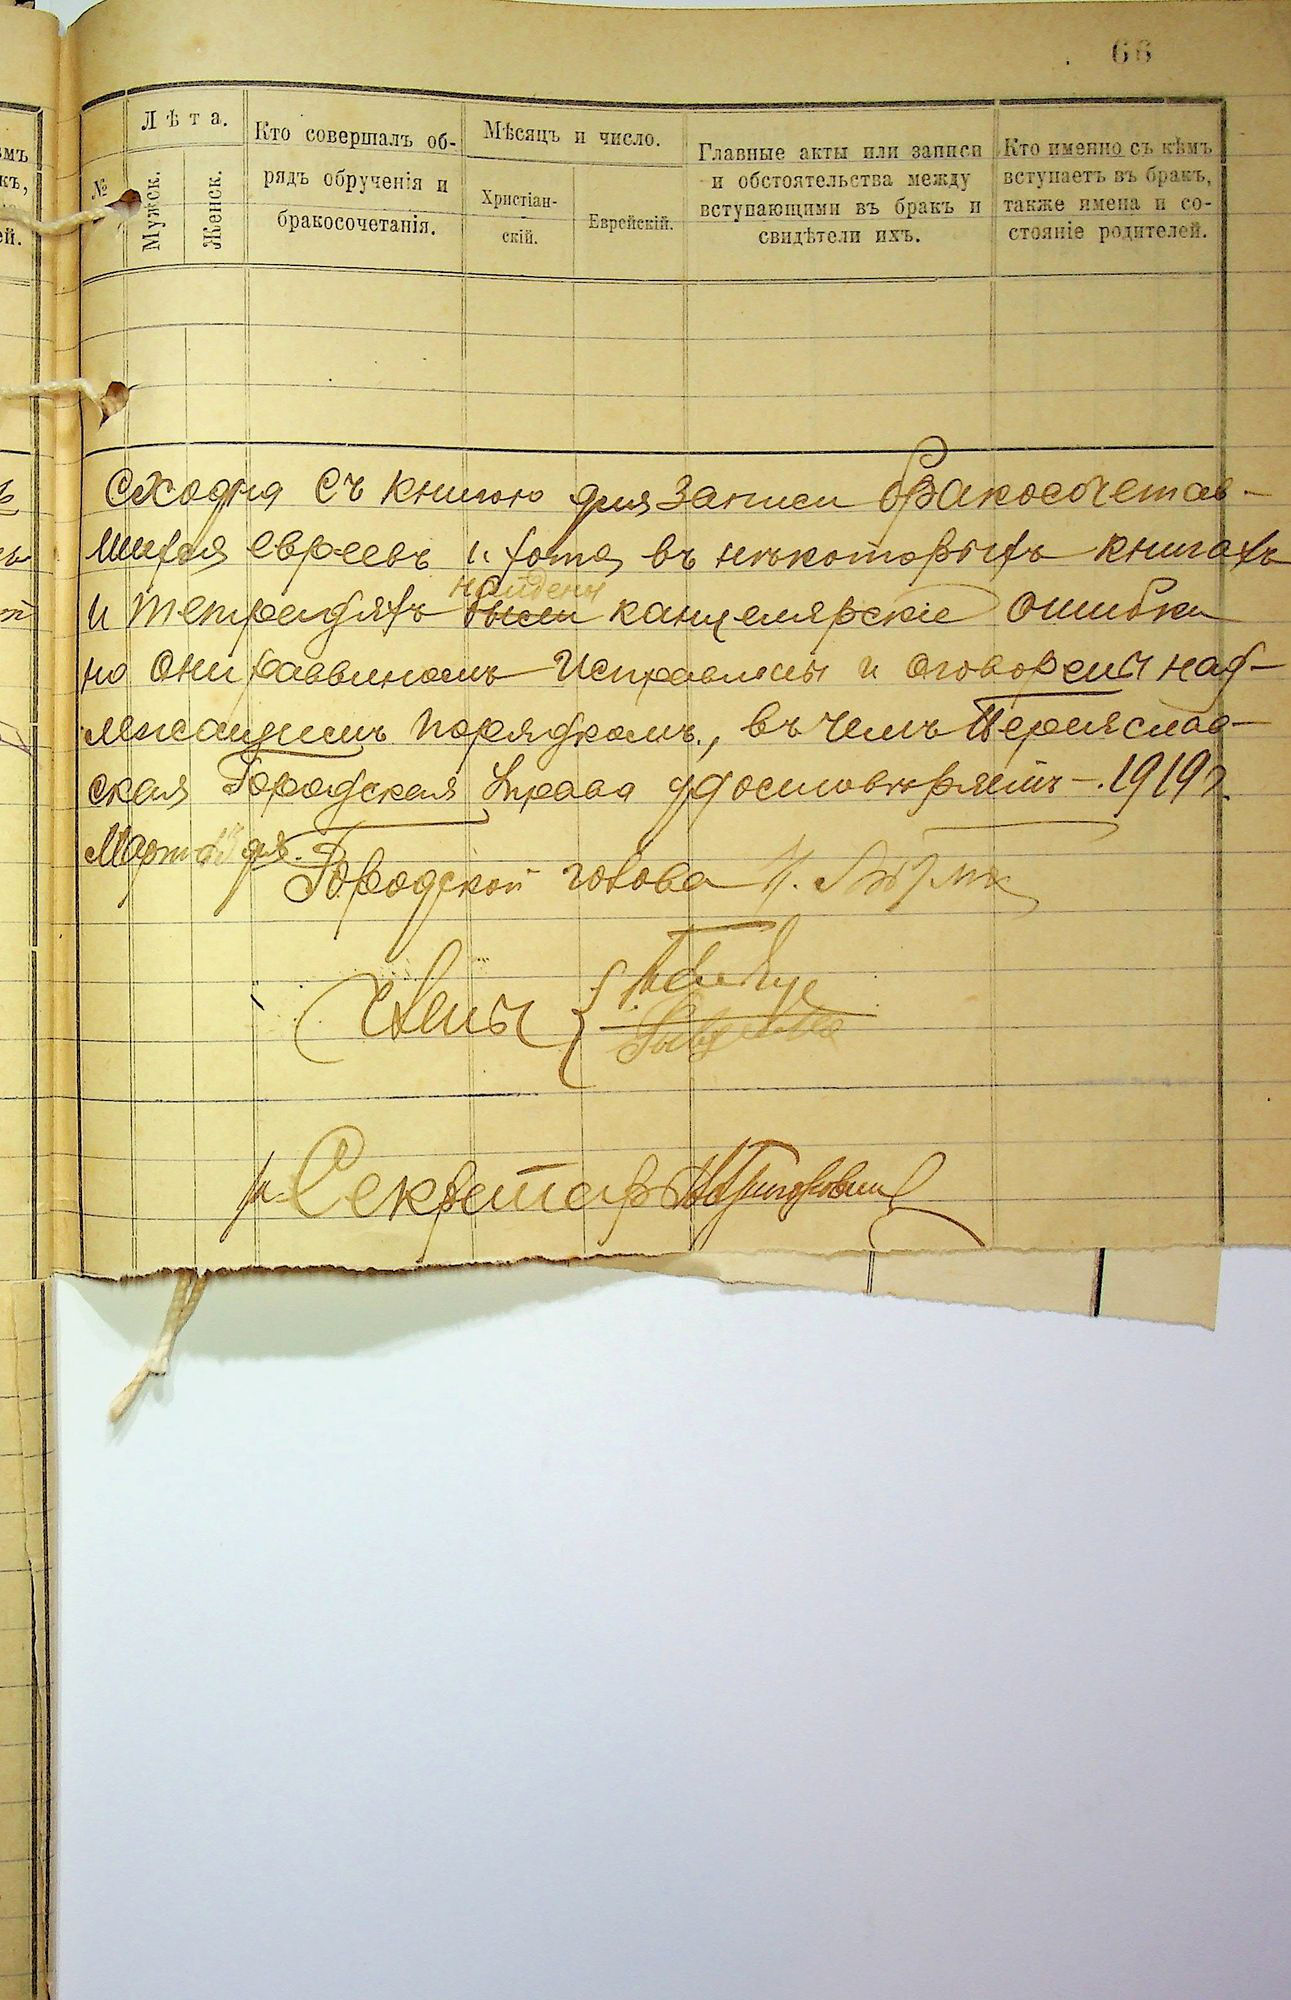 66
№
Лѣта.
Мужск.
Женск.
Кто совершалъ об-
рядъ обрученія и
бракосочетанія.
Мѣсяцъ и число.
Христіан-
скій.
Еврейскій.
Главные акты или записи
и обстоятельства между
вступающими въ бракъ и
свидѣтели ихъ.
Кто именно съ кѣмъ
вступаетъ въ бракъ,
также имена и со-
стояніе родителей.
Сходна съ книгою для записи бракосочетав-
шихся евреевъ и хотя въ нѣкоторыхъ книгахъ
найдены
и тетрадяхъ были канцелярскіе ошибки
но они раввиномъ исправлены и оговорены над-
лежащимъ порядкомъ, въ чемъ Переяслав-
ская Городская Управа удостовѣряетъ. 1919 г.
Марта дня.
Городской голова
Члены
Секретарь